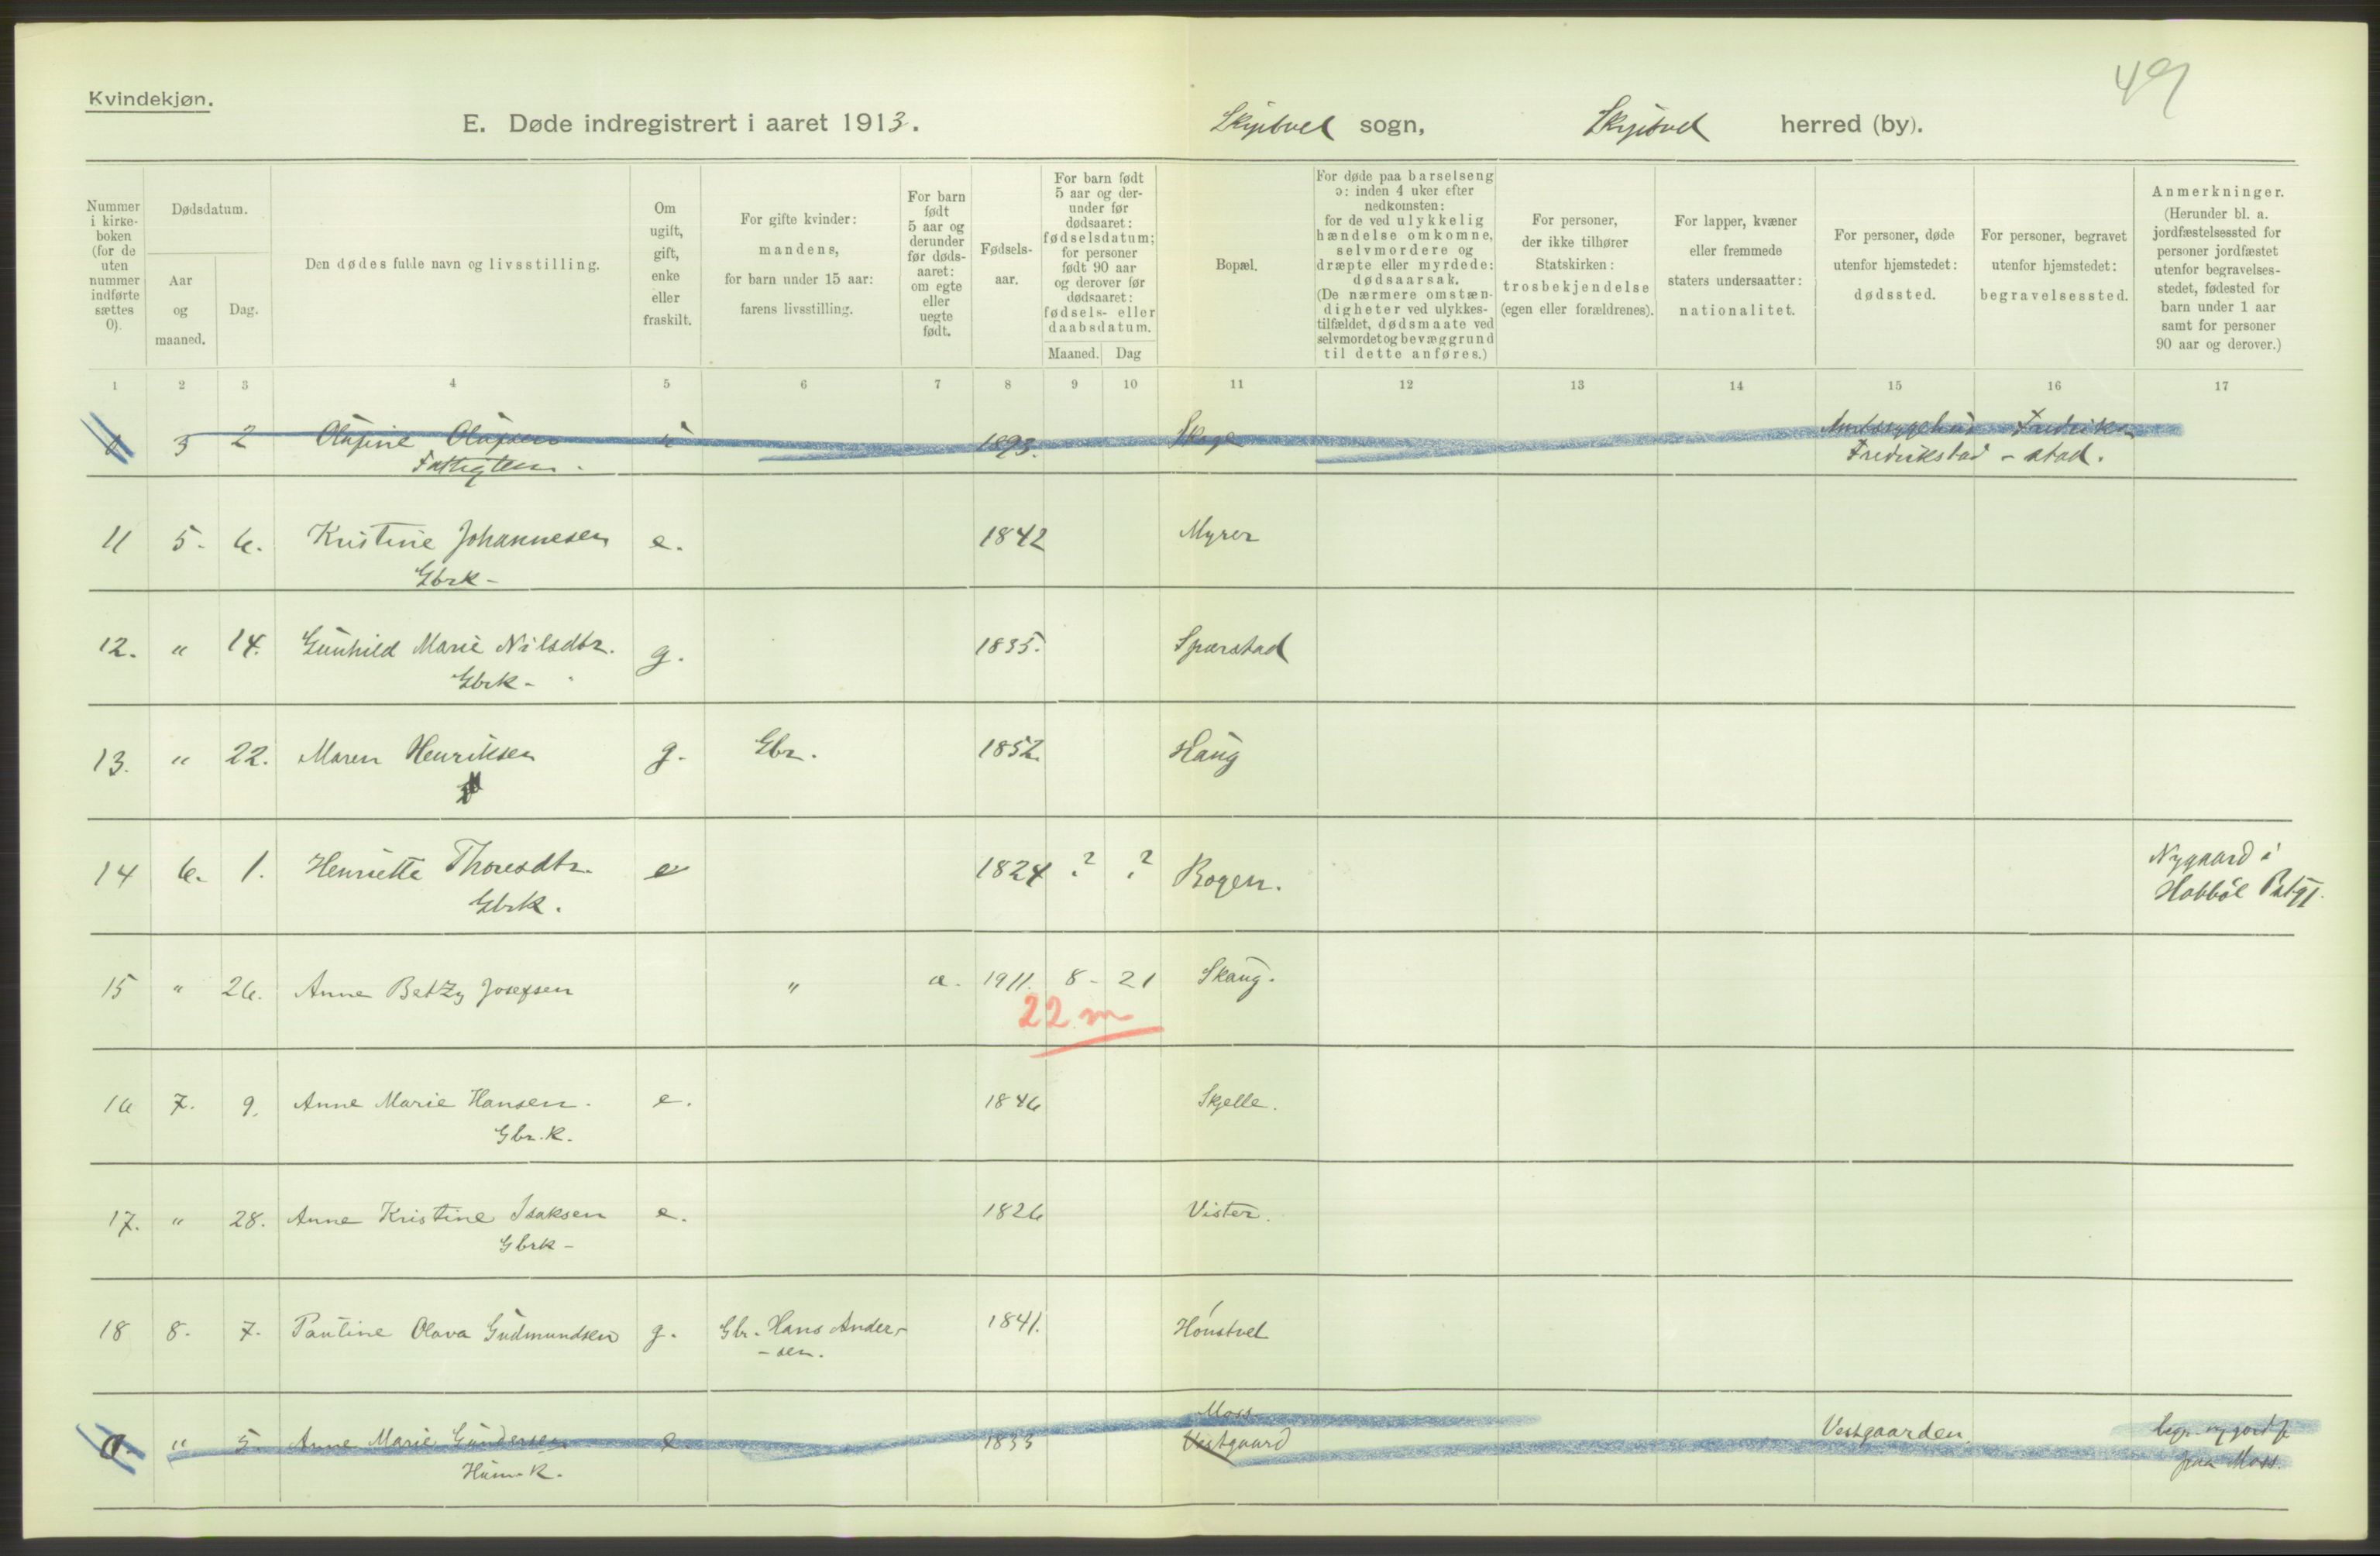 49
Kvindekjøn.
E. Døde indregistrert i aaret 1913. Skjebvel sogn, Skjebvel herred (by).
Nummer i kirke-boken (for de uten nummer indførte sættes 0).
Dødsdatum.
Aar og maaned.
Dag.
Den dødes fulde navn og livsstilling.
Om ugift, gift, enke eller fraskilt.
For gifte kvinder: mandens, for barn under 15 aar: farens livsstilling.
For barn født 5 aar og derunder før døds-aaret: om egte eller uegte født.
Fødsels-aar.
For barn født 5 aar og der-under før dødsaaret: fødselsdatum; for personer født 90 aar og derover før dødsaaret: fødsels- eller daabsdatum.
Maaned. Dag
Bopæl.
For døde paa barselseng ɔ: inden 4 uker efter nedkomsten: for de ved ulykkelig hændelse omkomne, selvmordere og dræpte eller myrdede: dødsaarsak. (De nærmere omstæn-digheter ved ulykkes-tilfældet, dødsmaate ved selvmordet og bevæggrund til dette anføres.)
For personer, der ikke tilhører Statskirken: trosbekjendelse (egen eller forældrenes).
For lapper, kvæner eller fremmede staters undersaatter: nationalitet.
For personer, døde utenfor hjemstedet: dødssted.
For personer, begravet utenfor hjemstedet: begravelsessted.
Anmerkninger. (Herunder bl. a. jordfæstelsessted for personer jordfæstet utenfor begravelses-stedet, fødested for barn under 1 aar samt for personer 90 aar og derover.)
1 2 3 4 5 6 7 8 9 10 11 12 13 14 15 16 17
0 3 2 Olufine Olufsen u 1893. Skoge Amtssygehus Fredrik-
Fattiglem. Fredrikstad - stad.
11 5. 6. Kristine Johannesen e. 1842 Myrer
Gbrk-
12. " 14. Gunhild Marie Nilsdtr. g. 1835. Sparstad
Gbrk-
13. " 22. Maren Henriksen g. Gbr. 1852. Haug
14 6. 1. Henriette Thoresdtr. e 1824 ? ? Bogen. Nygaard i
Gbrk. Hobböl
15 " 26. Anne Betzy Josefsen " a. 1911. 8- 21 Skaug.
22 m
16 7. 9. Anne Marie Hansen. e. 1846 Skjelle.
Gbr.k.
17. " 28. Anne Kristine Isaksen e. 1826 Vister.
Gbrk-
18 8. 7. Pauline Olava Gudmundsen g. Gbr. Hans Ander- 1841. Honstvet
-sen.
Moss
0. " 5. Anne Marie Gundersen e 1833 Vestgaard Vestgaarden.
Husm.k. paa Moss.